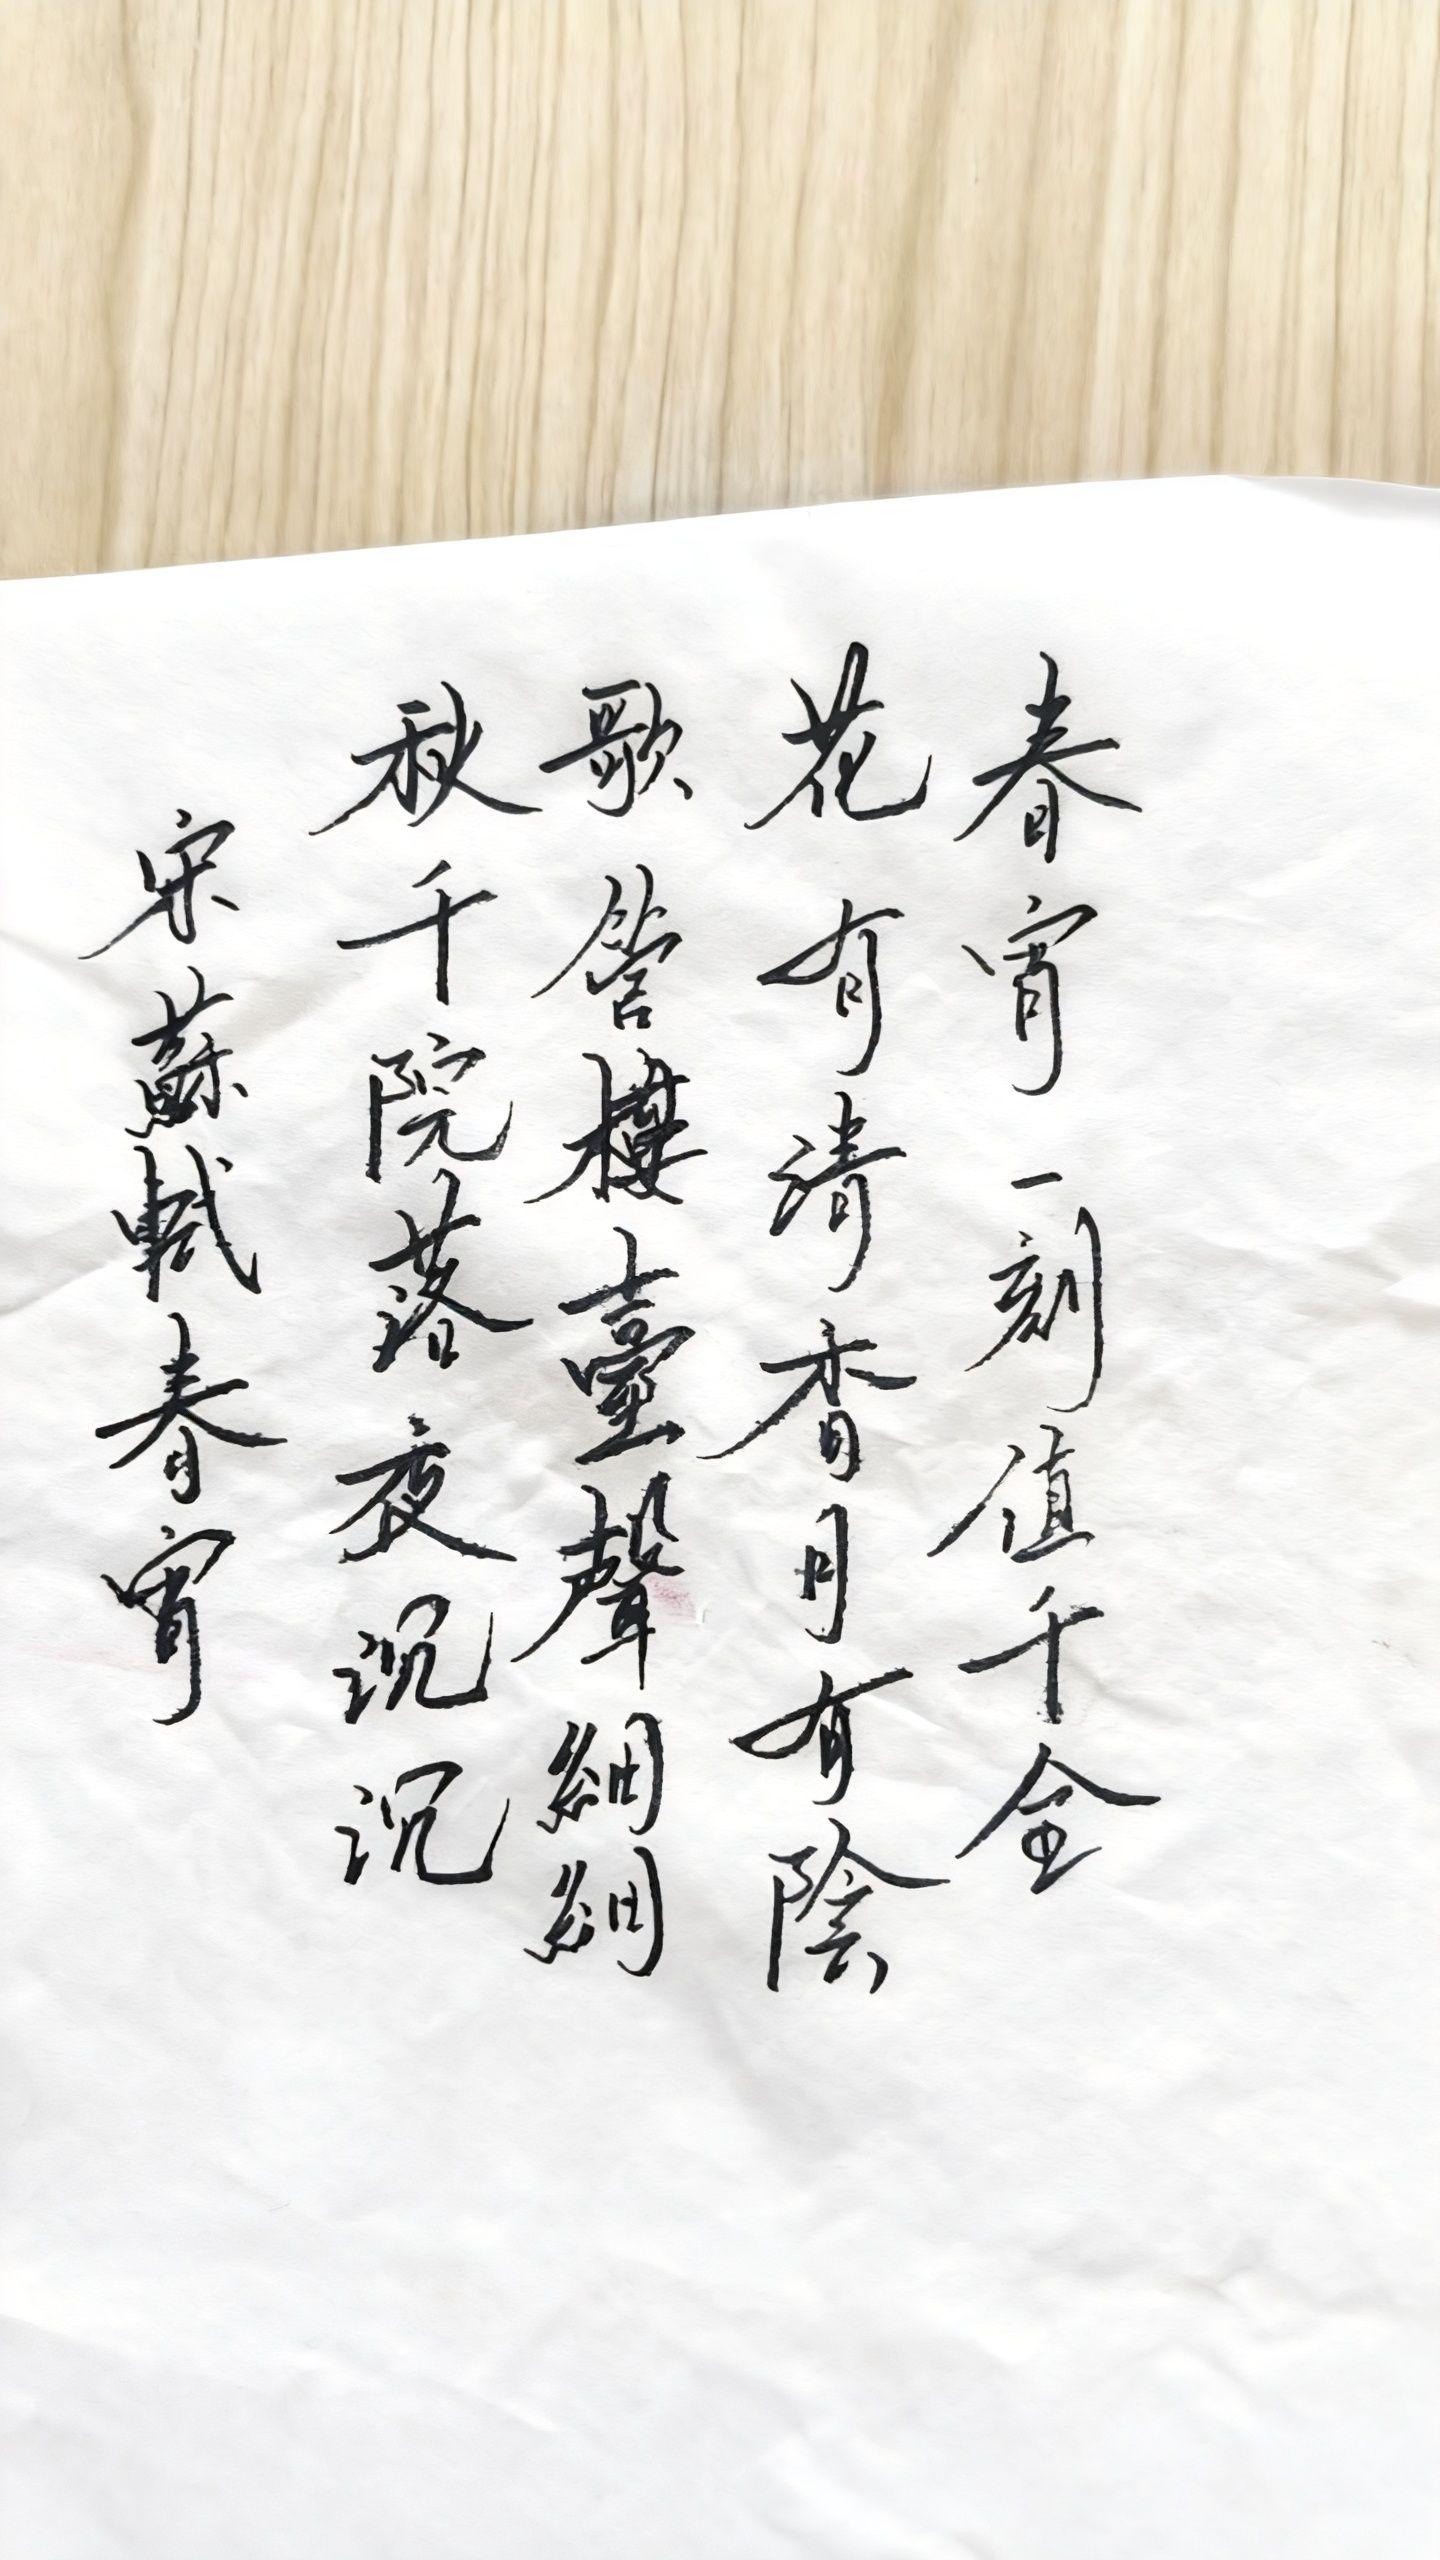 春宵一刻值千金
花有清香月有陰
歌管樓臺聲細細
秋千院落夜沉沉
宋蘇軾春宵